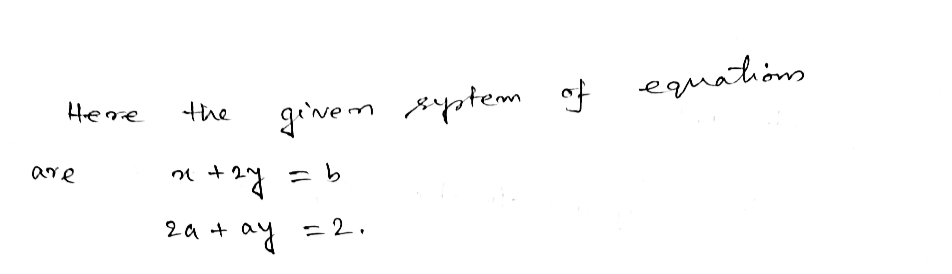 Here the given system of equations
are x + 2y = b
2a + ay = 2.